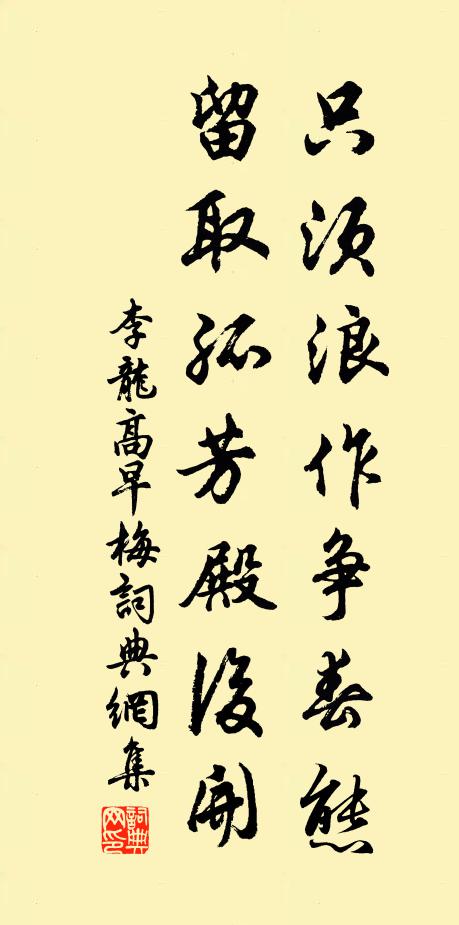 只须浪作争春態
留取孤芳殿後開
李龍高早梅詞典網集
詞典网印